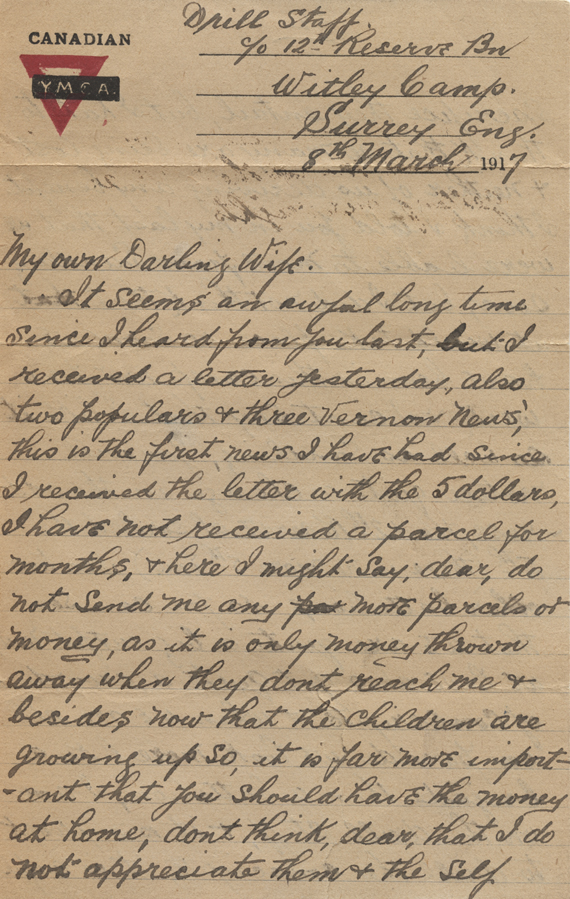 CANADIAN
YMCA
Drill Staff.
c/o 12th Reserve Bn
Witley Camp.
Surrey Eng.
8th March 1917
My own Darling Wife.
It seems an awful long time
since I heard from you last, but I
received a letter yesterday, also
two populars & three Vernon News',
this is the first news I have had since
I received the letter with the 5 dollars,
I have not received a parcel for
months, & here I might say, dear, do
not send me any more parcels or
money, as it is only money thrown
away when they dont reach me &
besides now that the children are
growing up so, it is far more import-
-ant that you should have the money
at home, dont think, dear, that I do
not appreciate them & the self